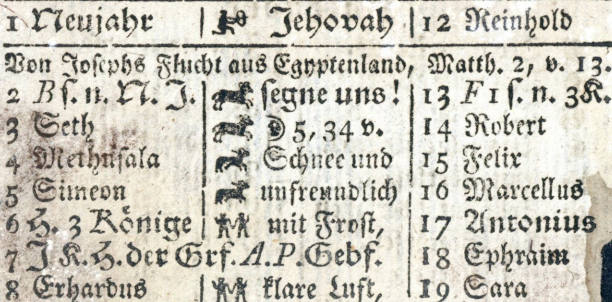 1 Neujahr Jehovah 12 Reinhold
Von Josephs Flucht aus Egyptenland, Matth. 2, v. 13.
2 B S. n. N. J. segne uns! 13 F 1 S. n. 3K.
3 Seth 5, 34 v. 14 Robert
4 Methusala Schnee und 15 Felix
5 Simeon unfreundlich 16 Marcellus
6 H. 3 Könige mit Frost, 17 Antonius
7 J K. H. der Grf. A. P. Gebf. 18 Ephraim
8 Erhardus klare Luft, 19 Sara